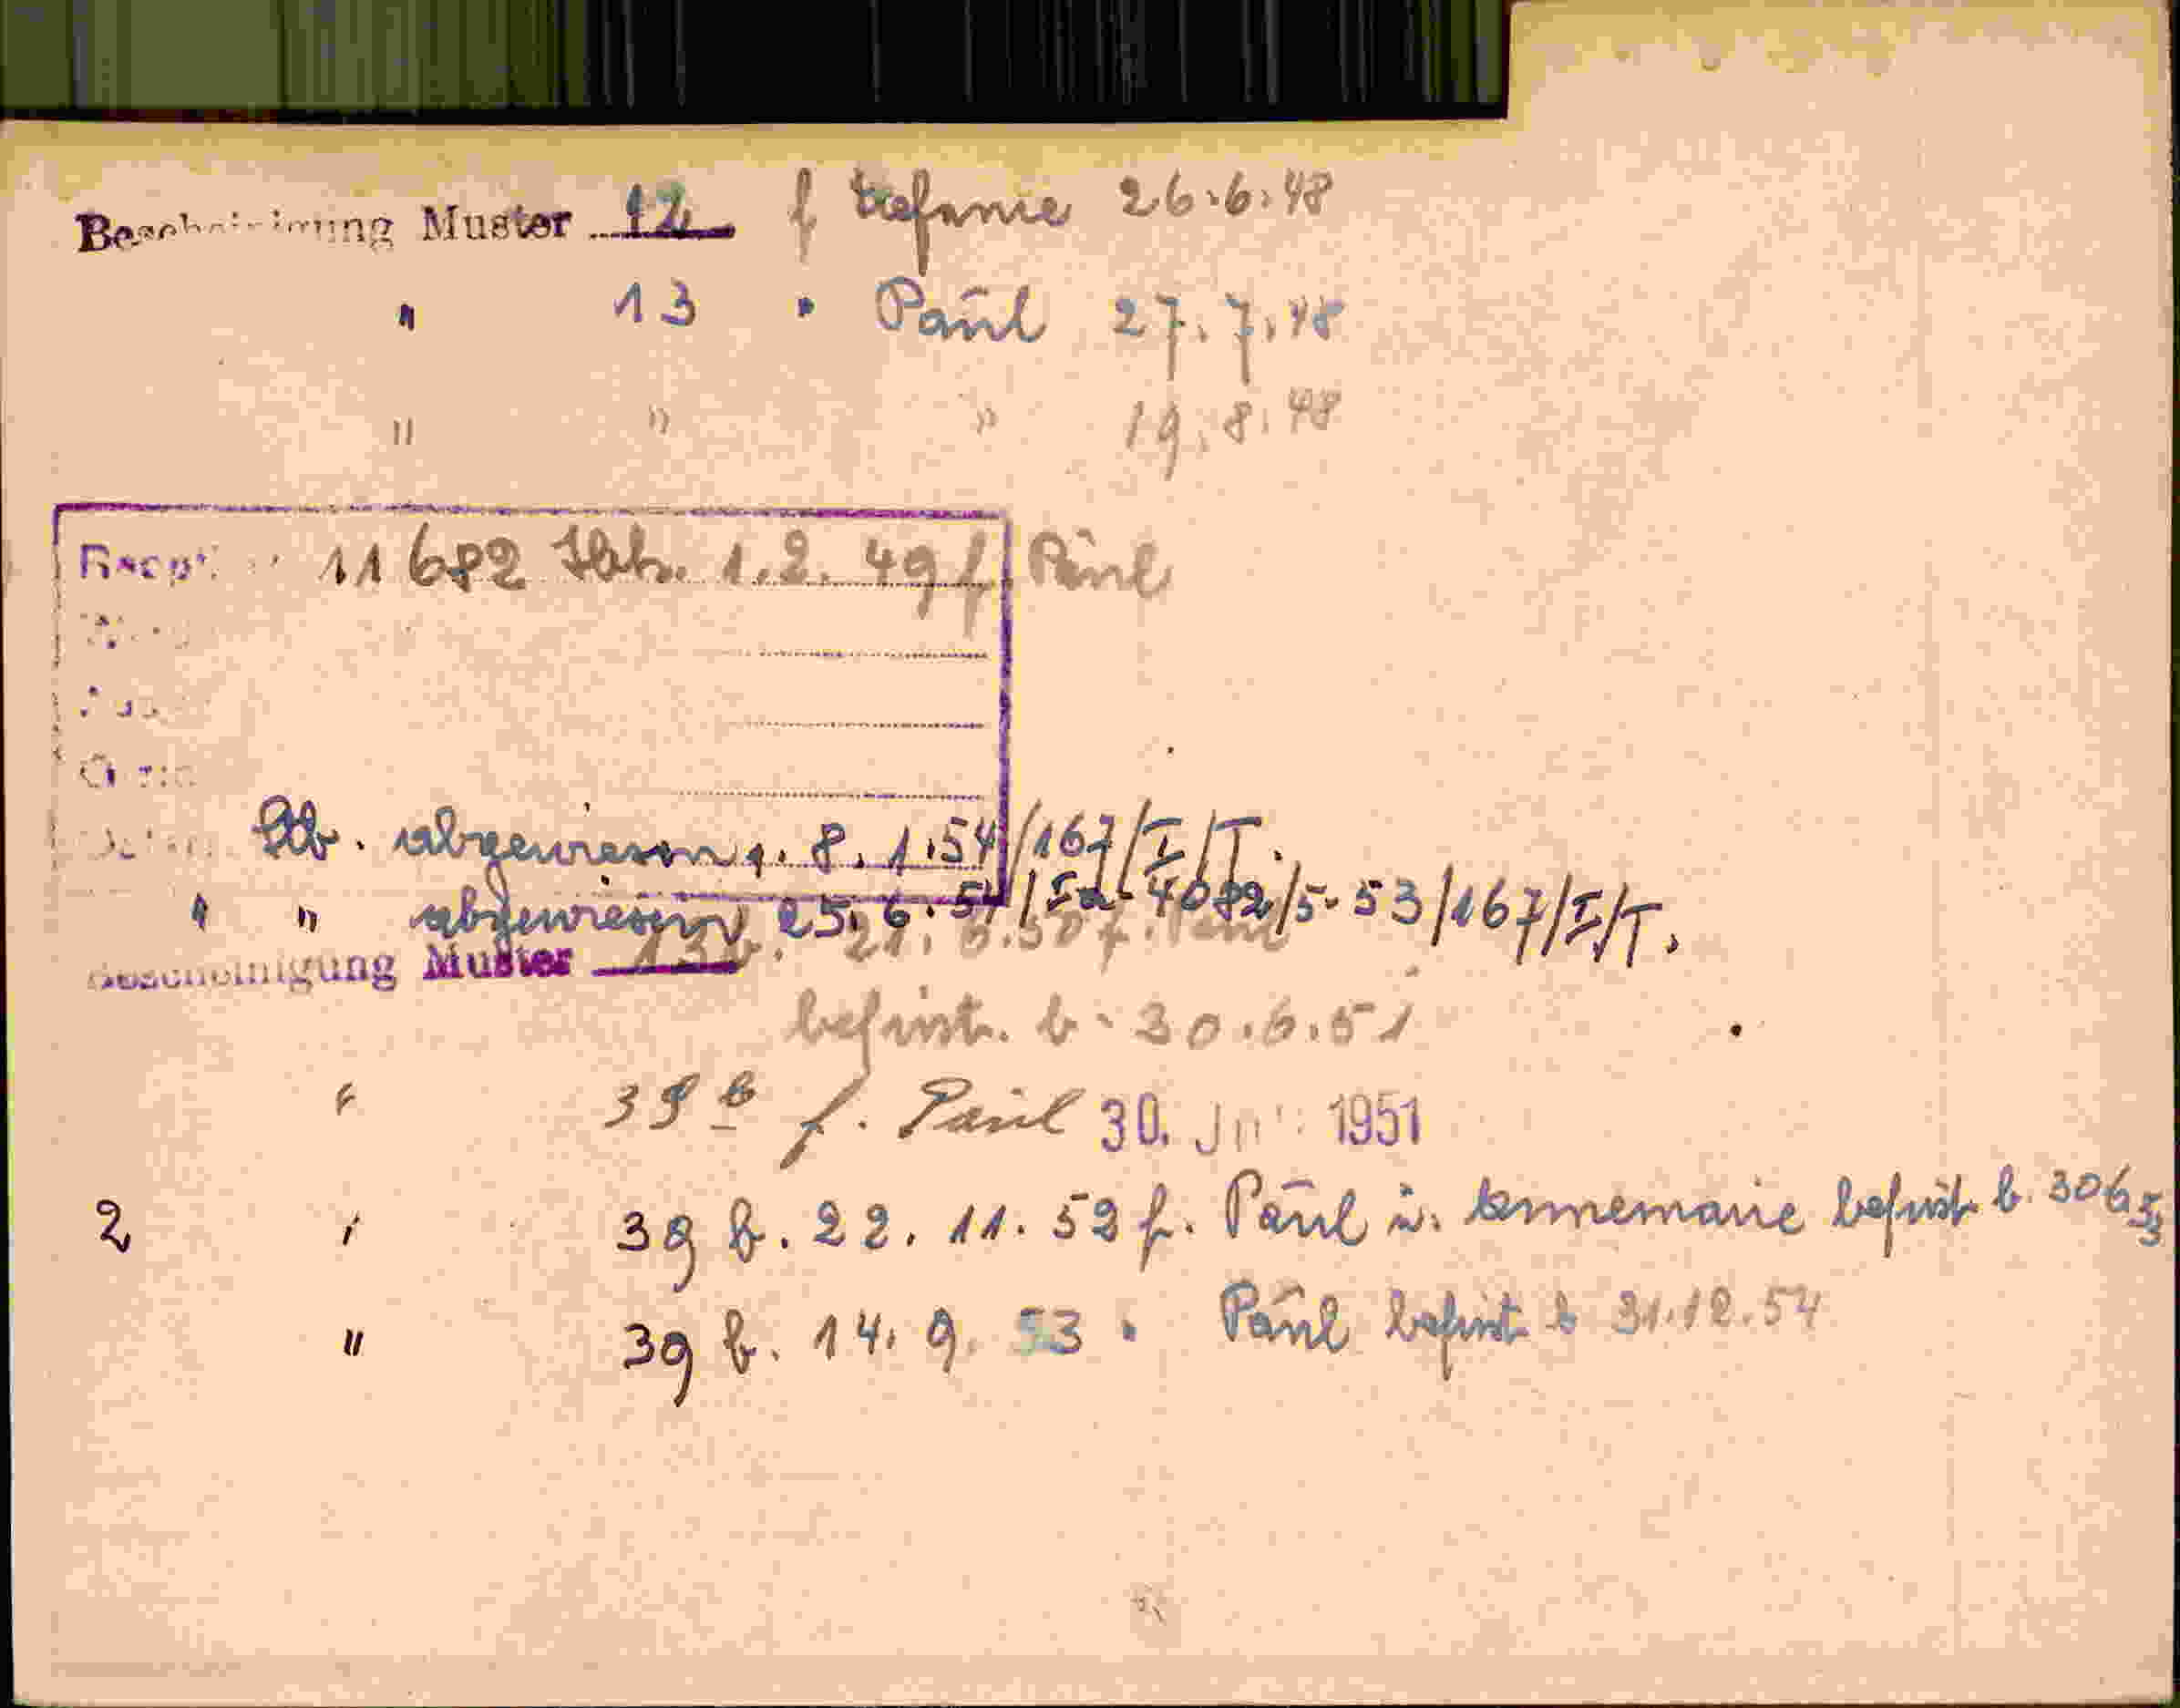 Bescheinigung Muster 12 f Stefanie 26.6.48
" 13 " Paul 27.7.48
" " " 19.8.48
11682 1.2.49 f Paul
Stb. abgewiesen 8.1.54/167/I/T.
" " abgewiesen 25.6.54/Ia-4082/5.53/167/I/T.
Bescheinigung Muster 21.6.50 f. Paul
befrist. b. 30.6.51
" 39 b f. Paul 30. 1951
2 " 39 b. 22.11.52 f. Paul u. Annemarie befrist b. 30 6 53
" 39 b. 14.9.53 " Paul befrist b 31.12.54